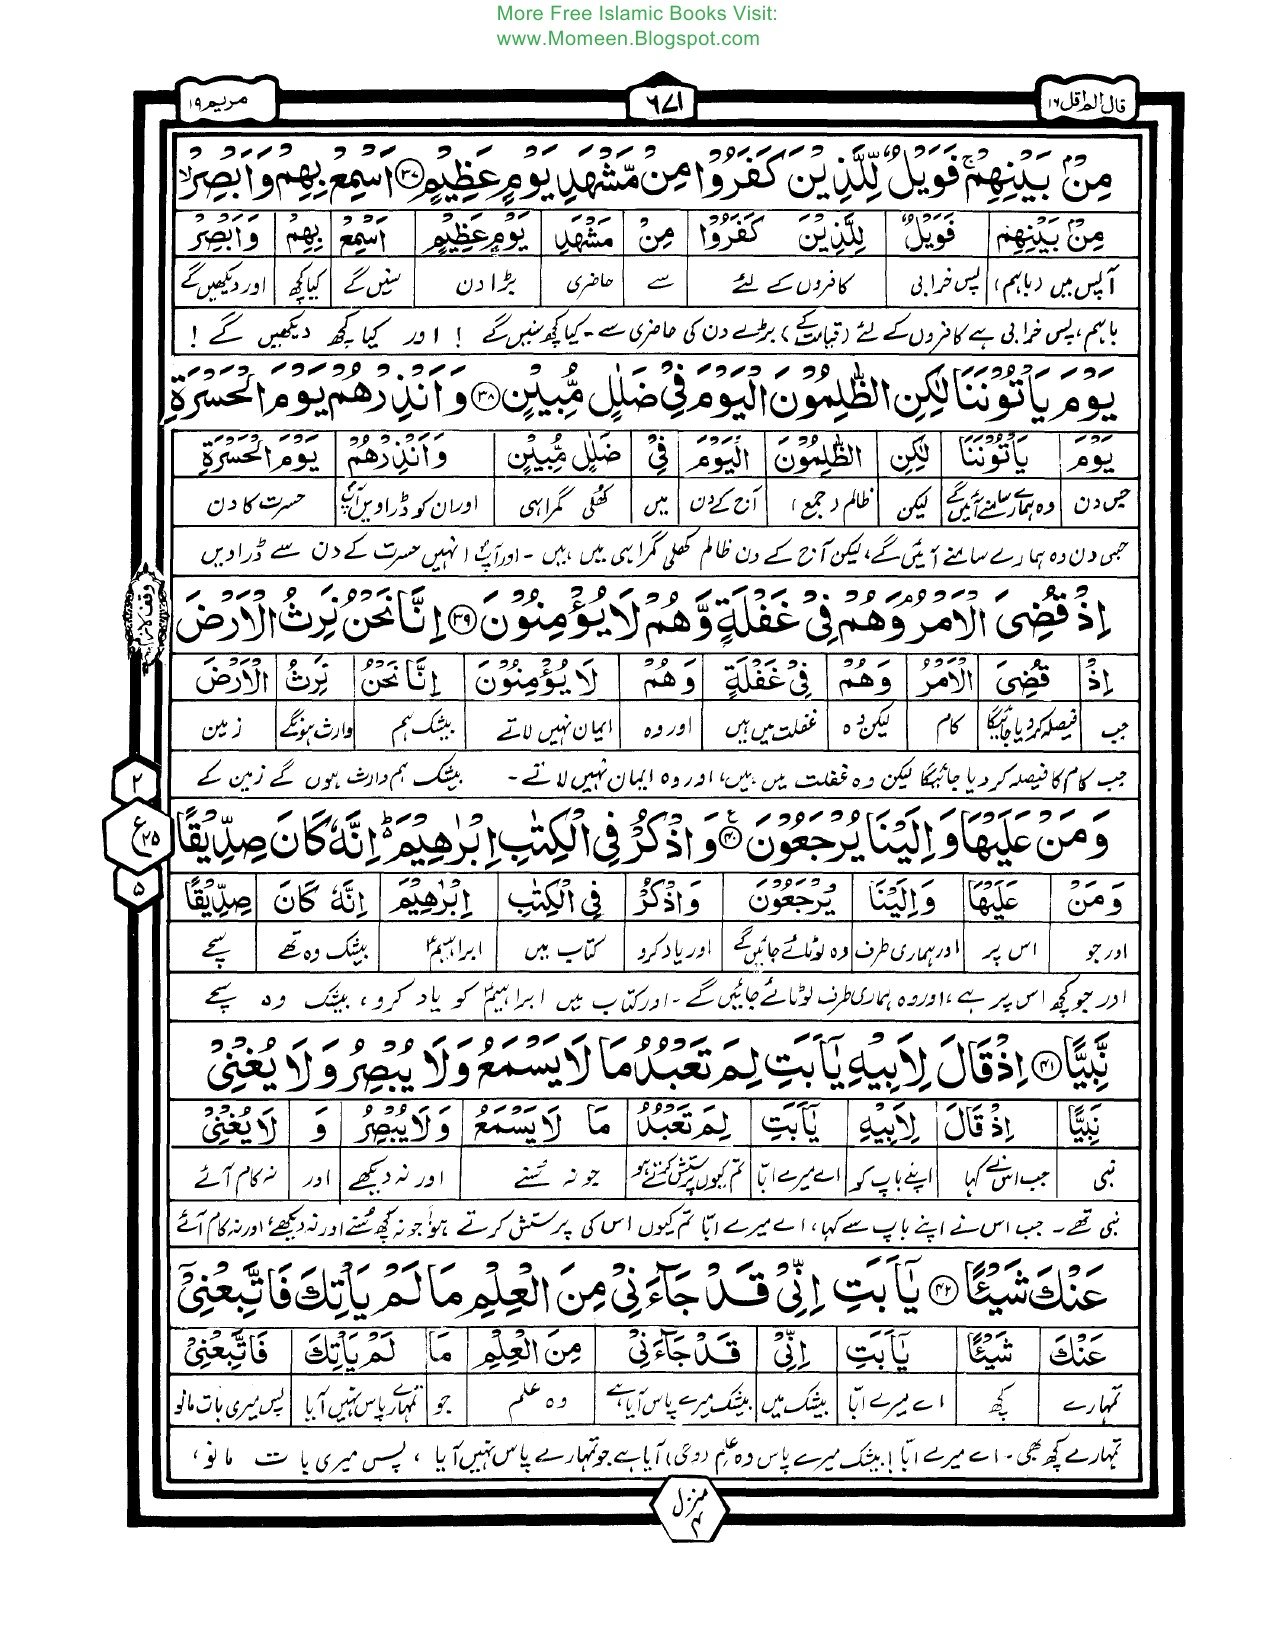 More Free Islamic Books Visit:
www.Momeen.Blogspot.com
قال الم اقل ۱۶
۶۷۱
مریم ۱۹
مِنْۢ بَیْنِهِمْ ۚ فَوَیْلٌ لِّلَّذِیْنَ كَفَرُوْا مِنْ مَّشْهَدِ یَوْمٍ عَظِیْمٍ ۳۷ اَسْمِعْ بِهِمْ وَاَبْصِرْ ۙ
مِنْۢ بَیْنِهِمْ فَوَیْلٌ لِّلَّذِیْنَ كَفَرُوْا مِنْ مَّشْهَدِ یَوْمٍ عَظِیْمٍ اَسْمِعْ بِهِمْ وَاَبْصِرْ
آپس میں (باہم) پس خرابی کافروں کے لئے سے حاضری بڑا دن سنیں گے کیا کچھ اور دیکھیں گے
باہم، پس خرابی ہے کافروں کے لئے (قیامت کے) بڑے دن کی حاضری سے۔ کیا کچھ سنیں گے ! اور کیا کچھ دیکھیں گے !
یَوْمَ یَاْتُوْنَنَا لٰكِنِ الظّٰلِمُوْنَ الْیَوْمَ فِیْ ضَلٰلٍ مُّبِیْنٍ ۳۸ وَاَنْذِرْهُمْ یَوْمَ الْحَسْرَةِ
یَوْمَ یَاْتُوْنَنَا لٰكِنِ الظّٰلِمُوْنَ الْیَوْمَ فِیْ ضَلٰلٍ مُّبِیْنٍ وَاَنْذِرْهُمْ یَوْمَ الْحَسْرَةِ
جس دن وہ ہمارے سامنے آئیں گے لیکن ظالم (جمع) آج کے دن میں کھلی گمراہی اور ان کو ڈراویں آپؐ حسرت کا دن
جس دن وہ ہمارے سامنے آئیں گے، لیکن آج کے دن ظالم کھلی گمراہی میں ہیں۔ اور آپؐ انہیں حسرت کے دن سے ڈرا دیں
اِذْ قُضِیَ الْاَمْرُ وَهُمْ فِیْ غَفْلَةٍ وَّهُمْ لَا یُؤْمِنُوْنَ ۳۹ اِنَّا نَحْنُ نَرِثُ الْاَرْضَ
اِذْ قُضِیَ الْاَمْرُ وَهُمْ فِیْ غَفْلَةٍ وَهُمْ لَا یُؤْمِنُوْنَ اِنَّا نَحْنُ نَرِثُ الْاَرْضَ
جب فیصلہ کر دیا جائیگا کام لیکن وہ غفلت میں ہیں اور وہ ایمان نہیں لاتے بیشک ہم وارث ہونگے زمین
جب کام کا فیصلہ کر دیا جائیگا لیکن وہ غفلت میں ہیں، اور وہ ایمان نہیں لاتے۔ بیشک ہم وارث ہوں گے زمین کے
۲
ع ۲۵
۵
وَمَنْ عَلَیْهَا وَاِلَیْنَا یُرْجَعُوْنَ ۴۰ وَاذْكُرْ فِی الْكِتٰبِ اِبْرٰهِیْمَ ؕ اِنَّهٗ كَانَ صِدِّیْقًا
وَمَنْ عَلَیْهَا وَاِلَیْنَا یُرْجَعُوْنَ وَاذْكُرْ فِی الْكِتٰبِ اِبْرٰهِیْمَ اِنَّهٗ كَانَ صِدِّیْقًا
اور جو اس پر اور ہماری طرف وہ لوٹائے جائیں گے اور یاد کرو کتاب میں ابراہیمؑ بیشک وہ تھے سچے
اور جو کچھ اس پر ہے، اور وہ ہماری طرف لوٹائے جائیں گے۔ اور کتاب میں ابراہیمؑ کو یاد کرو، بیشک وہ سچے
نَّبِیًّا ۴۱ اِذْ قَالَ لِاَبِیْهِ یٰۤاَبَتِ لِمَ تَعْبُدُ مَا لَا یَسْمَعُ وَلَا یُبْصِرُ وَلَا یُغْنِیْ
نَبِیًّا اِذْ قَالَ لِاَبِیْهِ یٰۤاَبَتِ لِمَ تَعْبُدُ مَا لَا یَسْمَعُ وَلَا یُبْصِرُ وَ لَا یُغْنِیْ
نبی جب اس نے کہا اپنے باپ کو اے میرے ابّا تم کیوں پرستش کرتے ہو جو نہ سنے اور نہ دیکھے اور نہ کام آئے
نبی تھے۔ جب اس نے اپنے باپ سے کہا، اے میرے ابّا تم کیوں اس کی پرستش کرتے ہو؟ جو نہ کچھ سُنے اور نہ دیکھے، اور نہ کام آئے
عَنْكَ شَیْـًٔا ۴۲ یٰۤاَبَتِ اِنِّیْ قَدْ جَآءَنِیْ مِنَ الْعِلْمِ مَا لَمْ یَاْتِكَ فَاتَّبِعْنِیْۤ
عَنْكَ شَیْـًٔا یٰۤاَبَتِ اِنِّیْ قَدْ جَآءَنِیْ مِنَ الْعِلْمِ مَا لَمْ یَاْتِكَ فَاتَّبِعْنِیْۤ
تمہارے کچھ اے میرے ابّا بیشک میں بیشک میرے پاس آیا ہے وہ علم جو تمہارے پاس نہیں آیا پس میری بات مانو
تمہارے کچھ بھی۔ اے میرے ابّا! بیشک میرے پاس وہ علم (وحی) آیا ہے جو تمہارے پاس نہیں آیا، پس میری بات مانو،
منزل ۴